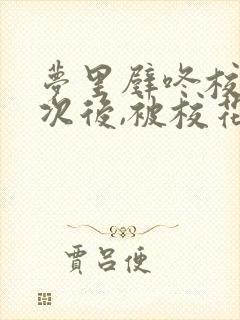 夢里壁咚校
次後,被校花
賈呂便